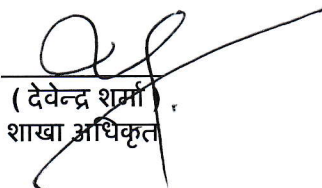 ( देवेन्द्र शर्मा ).
शाखा अधिकृत